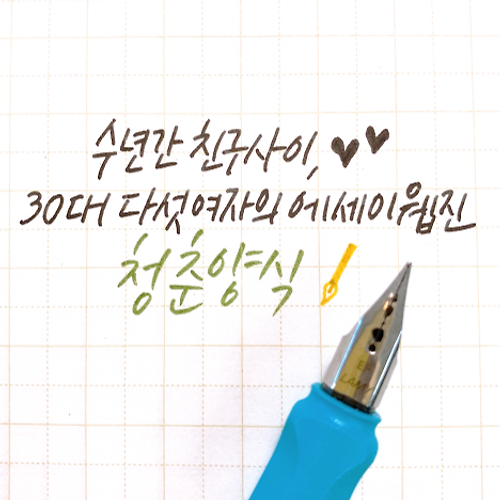 수년간 친구사이, ♥♥
30대 다섯여자의 에세이웹진
청춘양식
LAMY